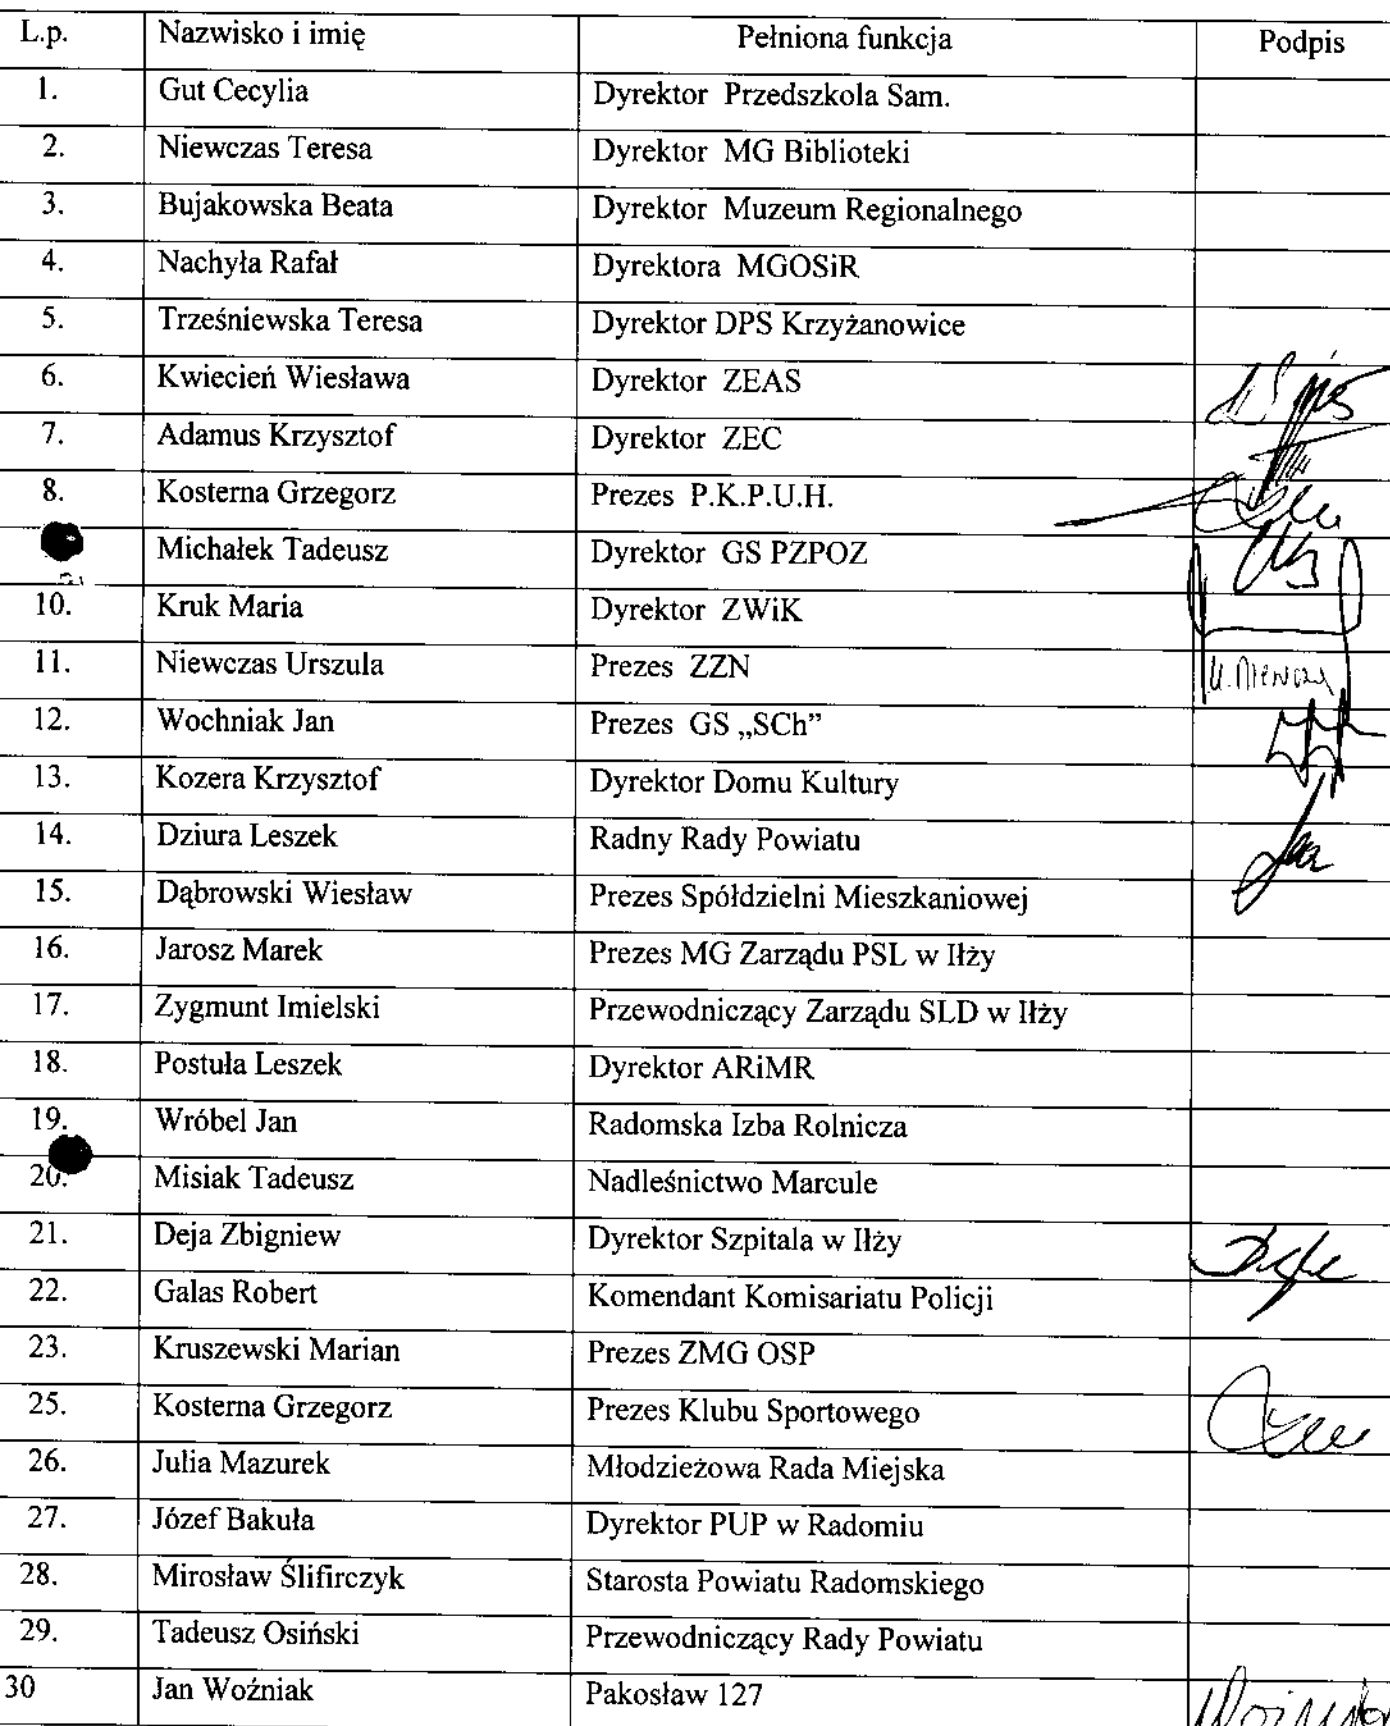 L.p. Nazwisko i imię Pełniona funkcja Podpis
1. Gut Cecylia Dyrektor Przedszkola Sam.
2. Niewczas Teresa Dyrektor MG Biblioteki
3. Bujakowska Beata Dyrektor Muzeum Regionalnego
4. Nachyła Rafał Dyrektora MGOSiR
5. Trześniewska Teresa Dyrektor DPS Krzyżanowice
6. Kwiecień Wiesława Dyrektor ZEAS
7. Adamus Krzysztof Dyrektor ZEC
8. Kosterna Grzegorz Prezes P.K.P.U.H.
Michałek Tadeusz Dyrektor GS PZPOZ
10. Kruk Maria Dyrektor ZWiK
11. Niewczas Urszula Prezes ZZN
12. Wochniak Jan Prezes GS „SCh”
13. Kozera Krzysztof Dyrektor Domu Kultury
14. Dziura Leszek Radny Rady Powiatu
15. Dąbrowski Wiesław Prezes Spółdzielni Mieszkaniowej
16. Jarosz Marek Prezes MG Zarządu PSL w Iłży
17. Zygmunt Imielski Przewodniczący Zarządu SLD w Iłży
18. Postuła Leszek Dyrektor ARiMR
19. Wróbel Jan Radomska Izba Rolnicza
20. Misiak Tadeusz Nadleśnictwo Marcule
21. Deja Zbigniew Dyrektor Szpitala w Iłży
22. Galas Robert Komendant Komisariatu Policji
23. Kruszewski Marian Prezes ZMG OSP
25. Kosterna Grzegorz Prezes Klubu Sportowego
26. Julia Mazurek Młodzieżowa Rada Miejska
27. Józef Bakuła Dyrektor PUP w Radomiu
28. Mirosław Ślifirczyk Starosta Powiatu Radomskiego
29. Tadeusz Osiński Przewodniczący Rady Powiatu
30 Jan Woźniak Pakosław 127